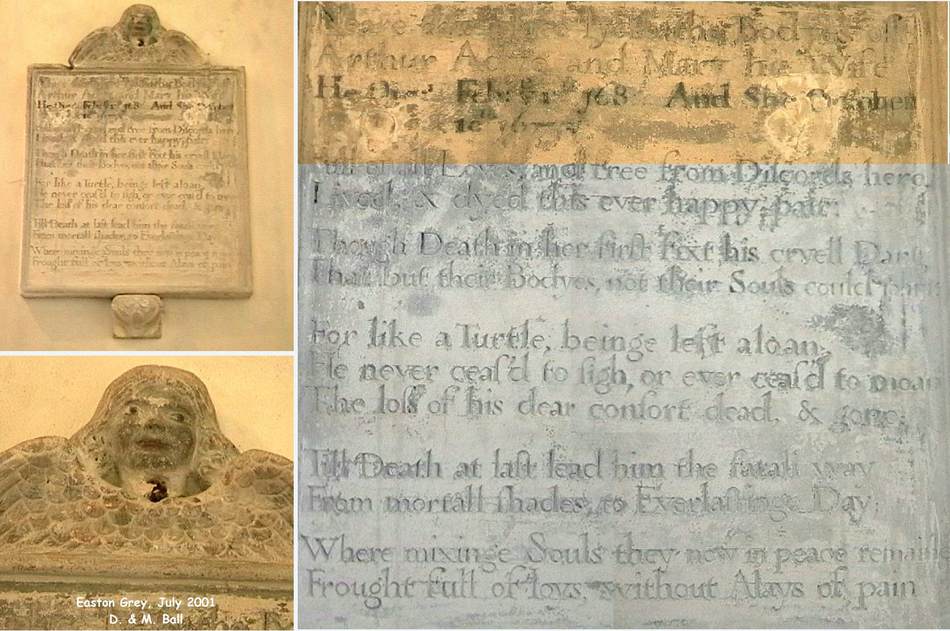 lye the Bodyes of
Arthur and Mary his Wife
He Dyed Feb: 168 And She October
Full of all Loves, and free from Discords here,
Lived, & dyed this ever happy pair:
Though Death in her first Fixt his cryell Dart
That but their Bodyes, not their Souls could part
For like a Turtle, beinge left aloan,
He never ceas'd to sigh, or ever ceas'd to moan
The loss of his dear consort dead, & gone;
Till Death at last lead him the fatall way
From mortall shades, to Everlastinge Day;
Where mixinge Souls they now in peace remain
Frought full of Joys, without Alays of pain
Easton Grey, July 2001
D. & M. Ball